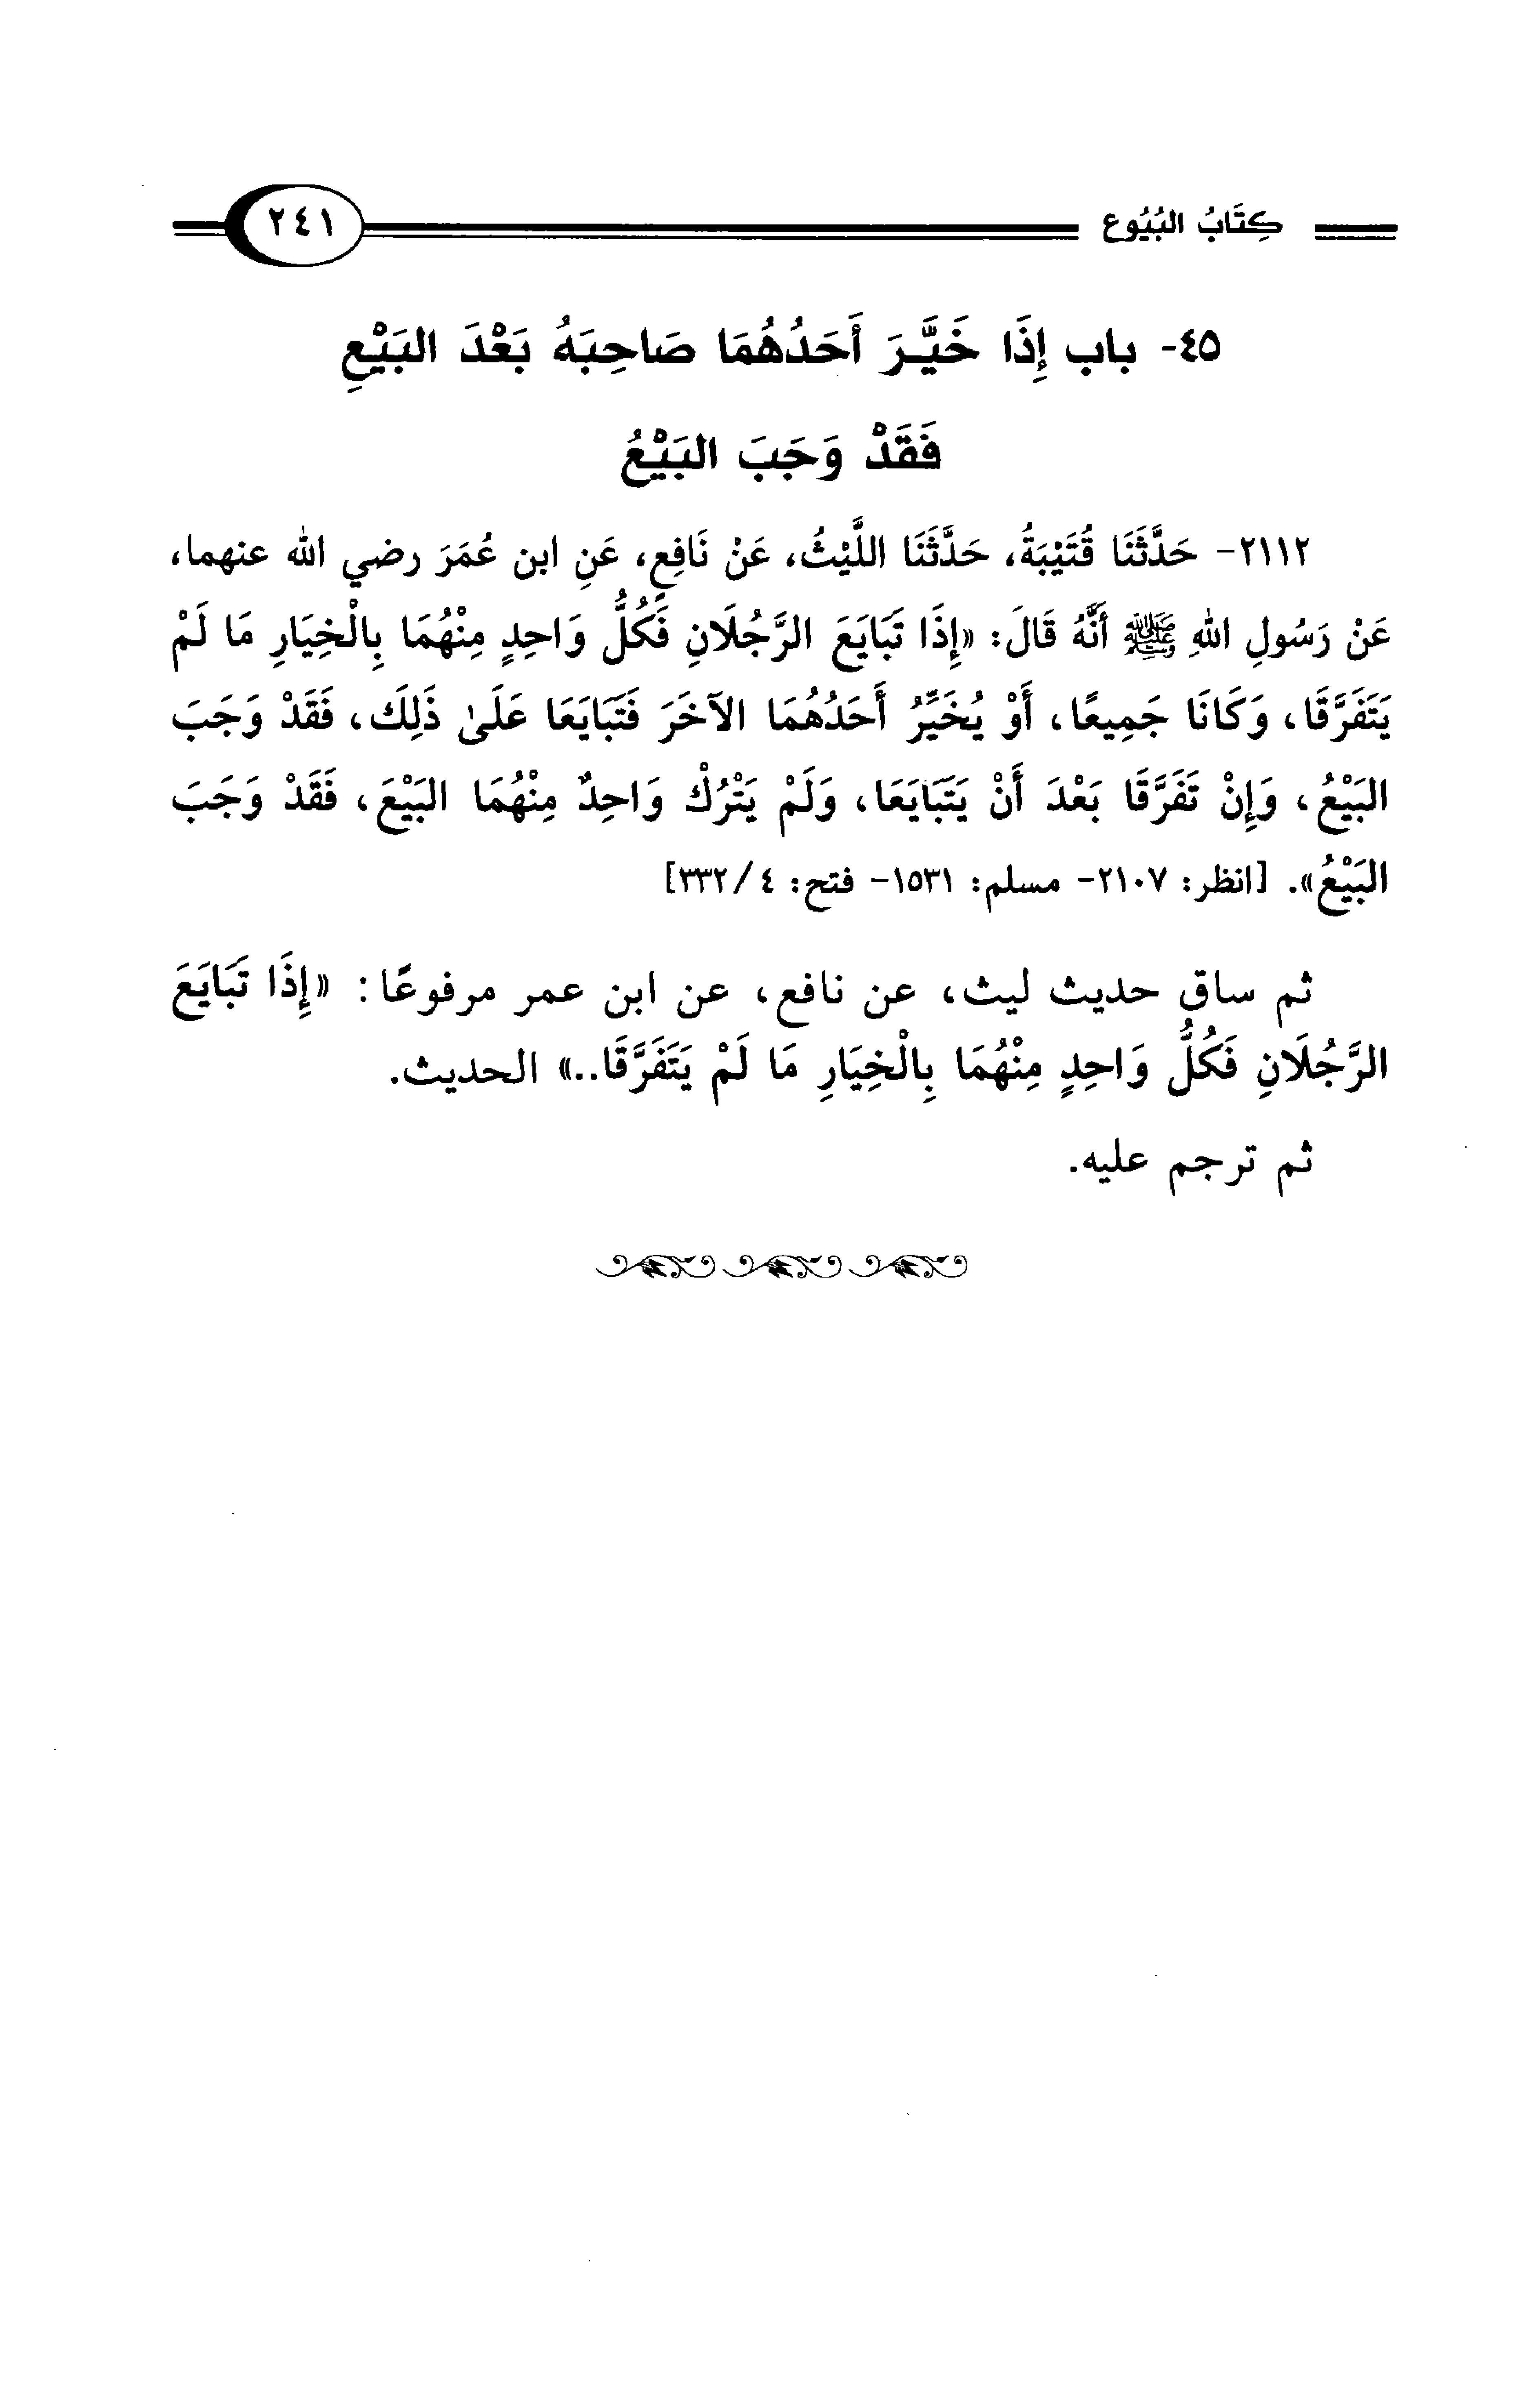 كِتَابُ البُيُوع ٢٤١
٤٥- باب إِذَا خَيَّـرَ أَحَدُهُمَا صَاحِبَهُ بَعْدَ البَيْعِ
فَقَدْ وَجَبَ البَيْعُ
٢١١٢- حَدَّثَنَا قُتَيْبَةُ، حَدَّثَنَا اللَّيْثُ، عَنْ نَافِعٍ، عَنِ ابن عُمَرَ رضي الله عنهما،
عَنْ رَسُولِ اللهِ ﷺ أَنَّهُ قَالَ: «إِذَا تَبَايَعَ الرَّجُلَانِ فَكُلُّ وَاحِدٍ مِنْهُمَا بِالْخِيَارِ مَا لَمْ
يَتَفَرَّقَا، وَكَانَا جَمِيعًا، أَوْ يُخَيِّرُ أَحَدُهُمَا الآخَرَ فَتَبَايَعَا عَلَىٰ ذَلِكَ، فَقَدْ وَجَبَ
البَيْعُ، وَإِنْ تَفَرَّقَا بَعْدَ أَنْ يَتَبَايَعَا، وَلَمْ يَتْرُكْ وَاحِدٌ مِنْهُمَا البَيْعَ، فَقَدْ وَجَبَ
البَيْعُ». [انظر: ٢١٠٧- مسلم: ١٥٣١- فتح: ٤/ ٣٣٢]
ثم ساق حديث ليث، عن نافع، عن ابن عمر مرفوعًا: «إِذَا تَبَايَعَ
الرَّجُلَانِ فَكُلُّ وَاحِدٍ مِنْهُمَا بِالْخِيَارِ مَا لَمْ يَتَفَرَّقَا..» الحديث.
ثم ترجم عليه.